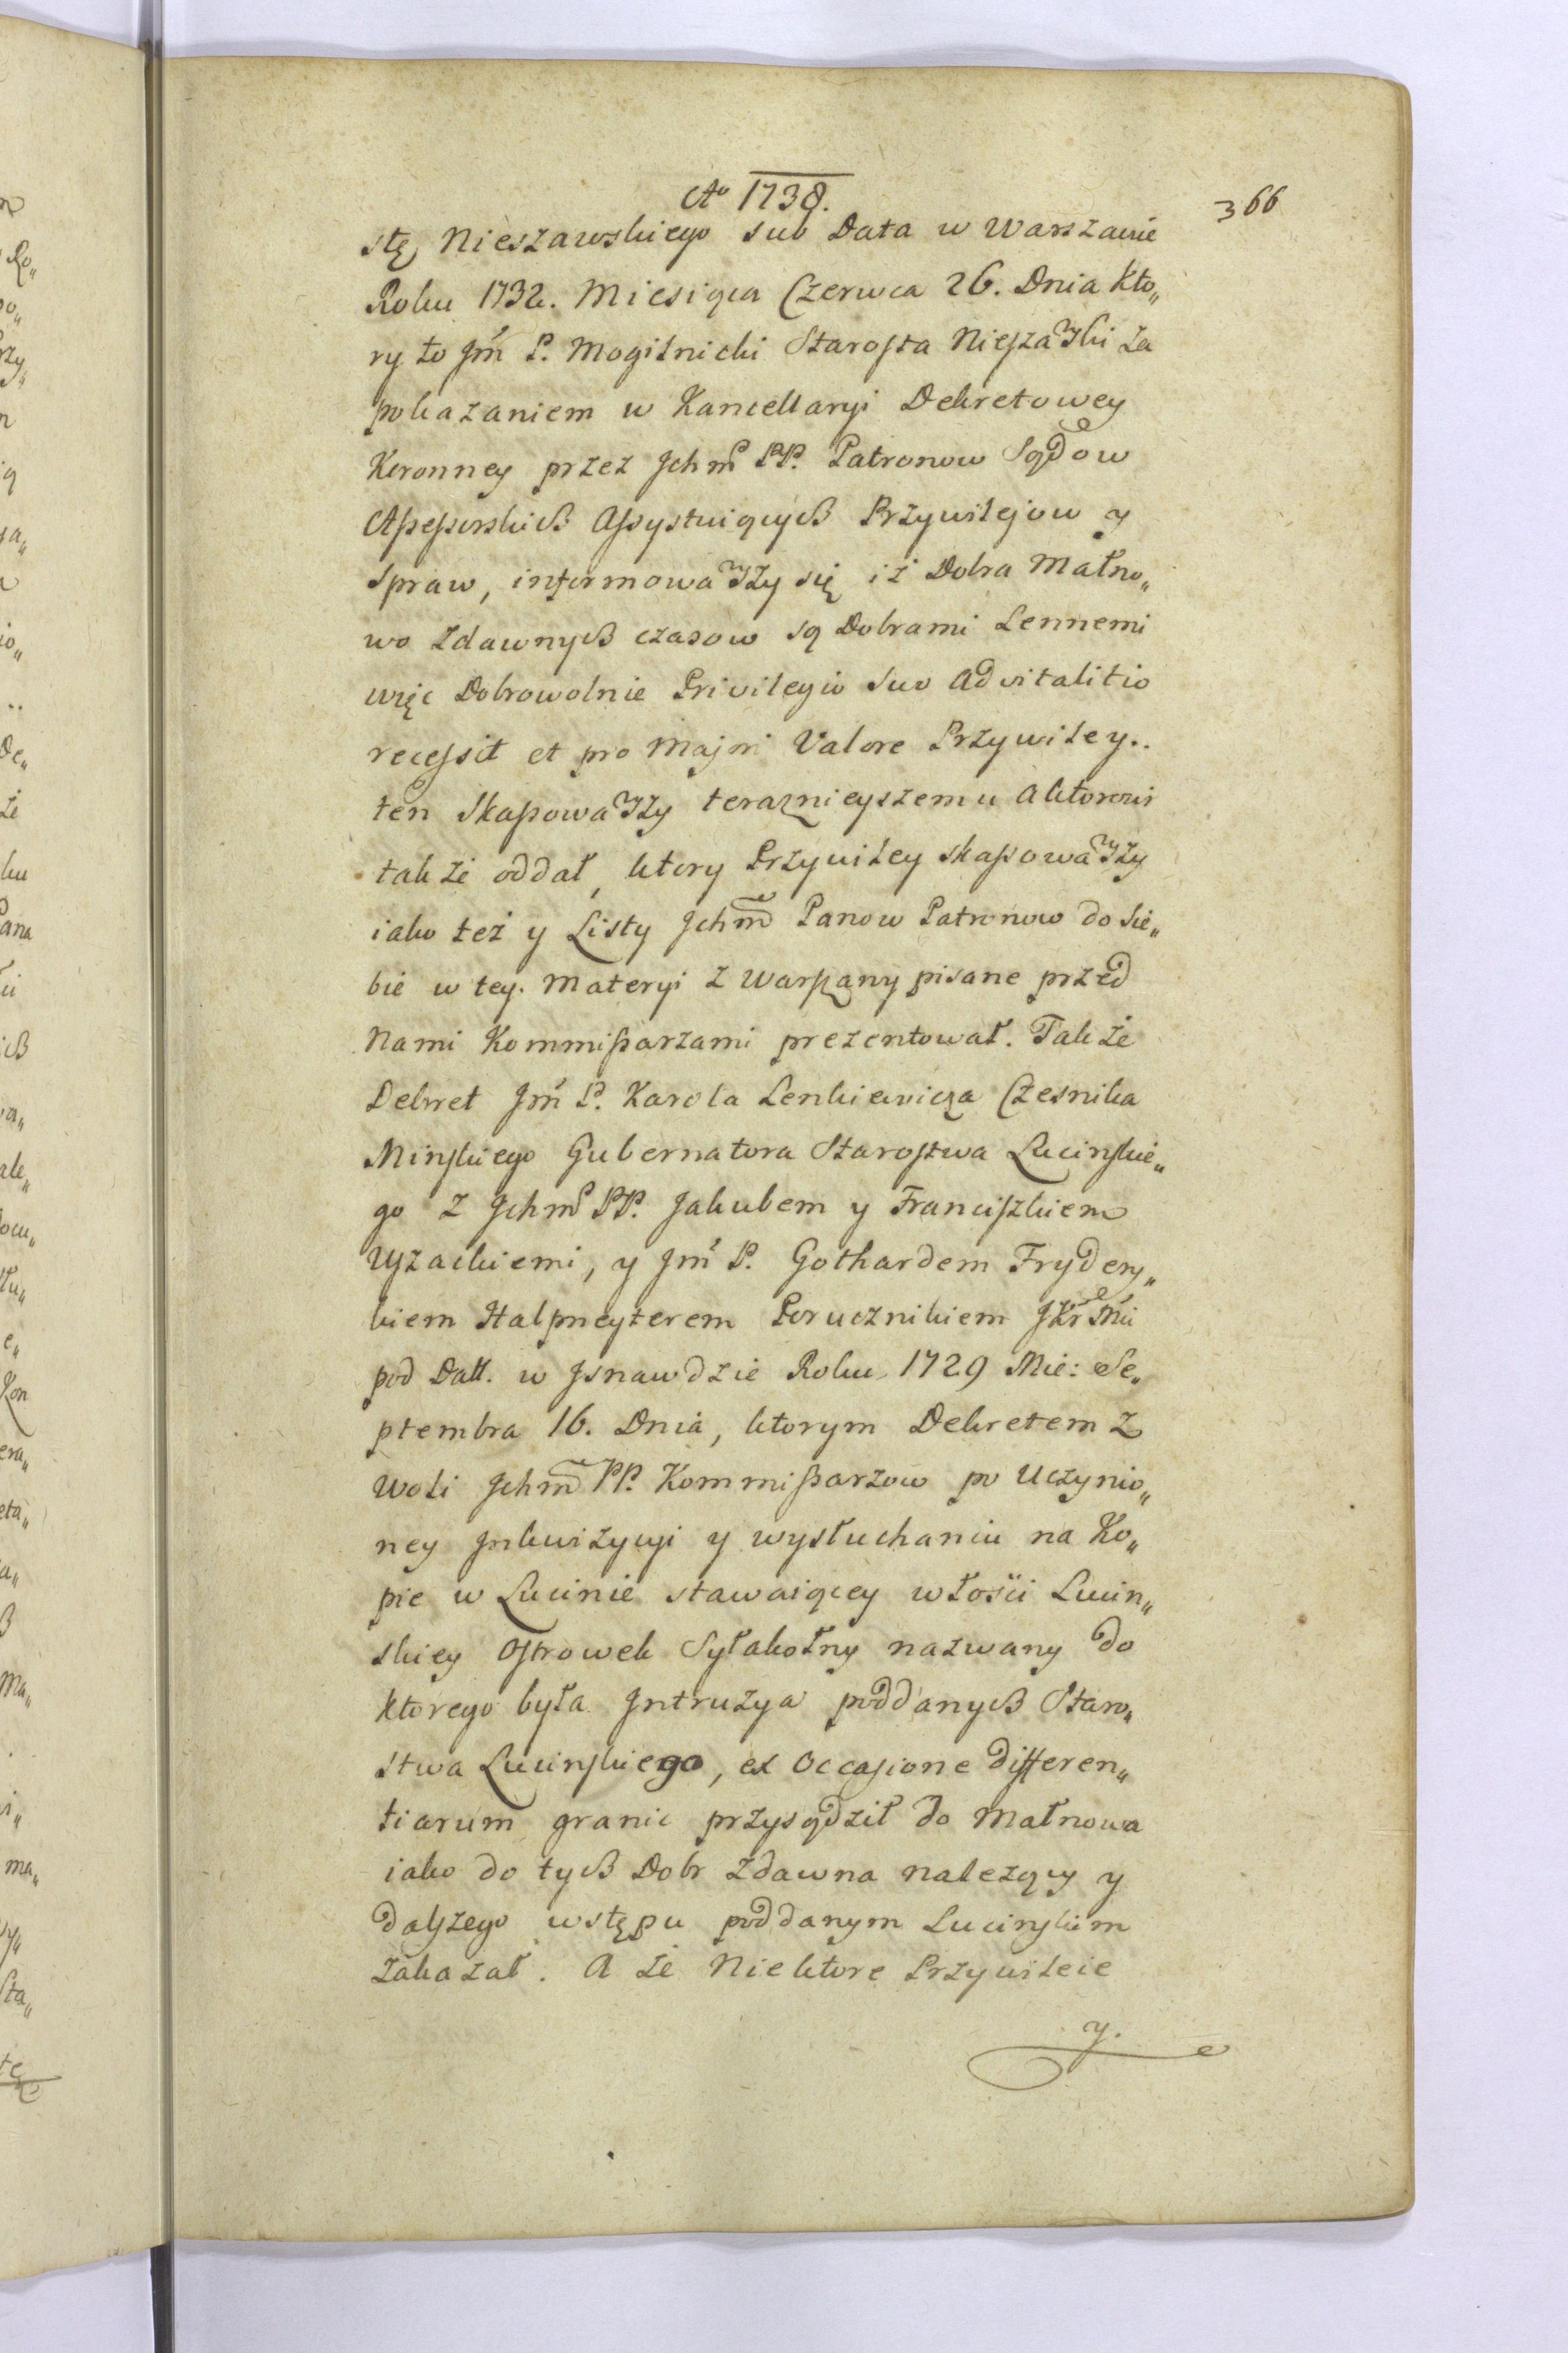 Aº 1738.
366
stę Nieszawskiego sub Data w Warszawie
Roku 1732. Miesiąca Czerwca 26. Dnia Kto„
ry to Jm̃ P. Mogilnicki Starosta Nieszawski za
pokazaniem w Kancellaryi Dekretowey
Koronney przez Jchm̃ PP. Patronow Sądow
Assessorskich Assystuiących Przywilejow y
Spraw, informowawszy się iż Dobra Małno„
wo zdawnych czasow są Dobrami Lennemi
więc Dobrowolnie Privilegio Suo Advitalitio
recessit et pro Majori Valore Przywiley..
ten Skassowawszy teraznieyszemu Aktorowi
także oddał, ktory Przywiley skassowawszy
iako też y Listy Jchm̃ Panow Patronow do Sie„
bie w tey. Materyi z Warszawy pisane przed
Nami Kommissarzami prezentował. Także
Dekret Jm̃ P. Karola Lenkiewicza Czesnika
Minskiego Gubernatora Starostwa Lucinskie„
go z Jchm̃ PP. Jakubem y Franciszkiem
Uzackiemi, y Jm̃ P. Gothardem Frydery„
kiem Halpneyterem Porucznikiem JKr Mci
pod Datt. w Jsnawdzie Roku 1729 Mie: Se„
ptembra 16. Dnia, ktorym Dekretem z
Woli Jchm̃ PP. Kommissarzow po Uczynio„
ney Jnkwizycyi y wysłuchaniu na Ko„
pie w Lucinie stawaiącey włości Lucin„
skiey Ostrowek Syłakołny nazwany do
ktorego była Jntruzya poddanych Staro„
stwa Lucinskiego, ex Occasione differen„
tiarum granic przysądził do Małnowa
iako do tych Dobr zdawna należący y
dalszego wstępu poddanym Lucinskim
zakazał. A że Niektore Przywileie
y.